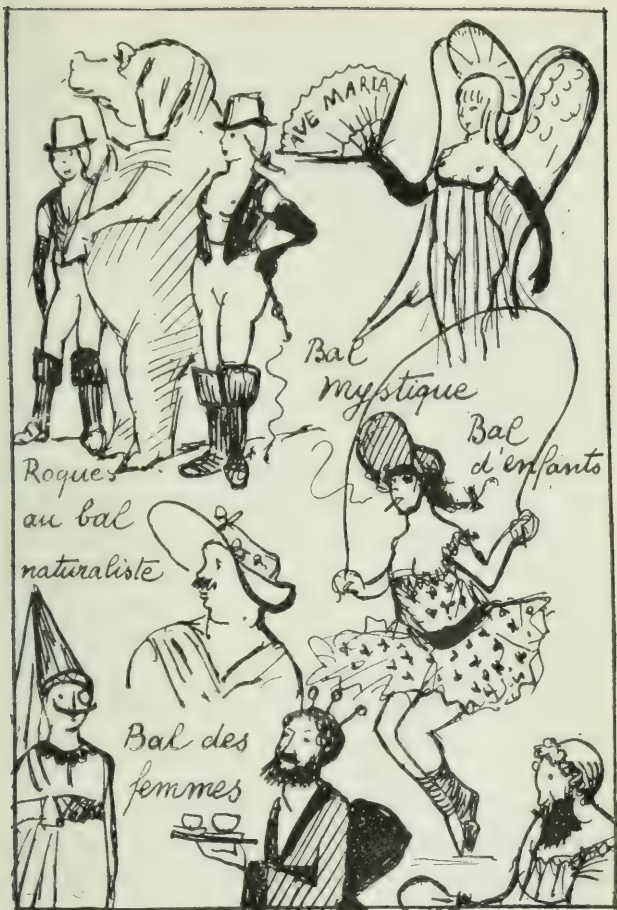 AVE MARIA
Bal
mystique
Bal
d'enfants
Roques
au bal
naturaliste
Bal des
femmes